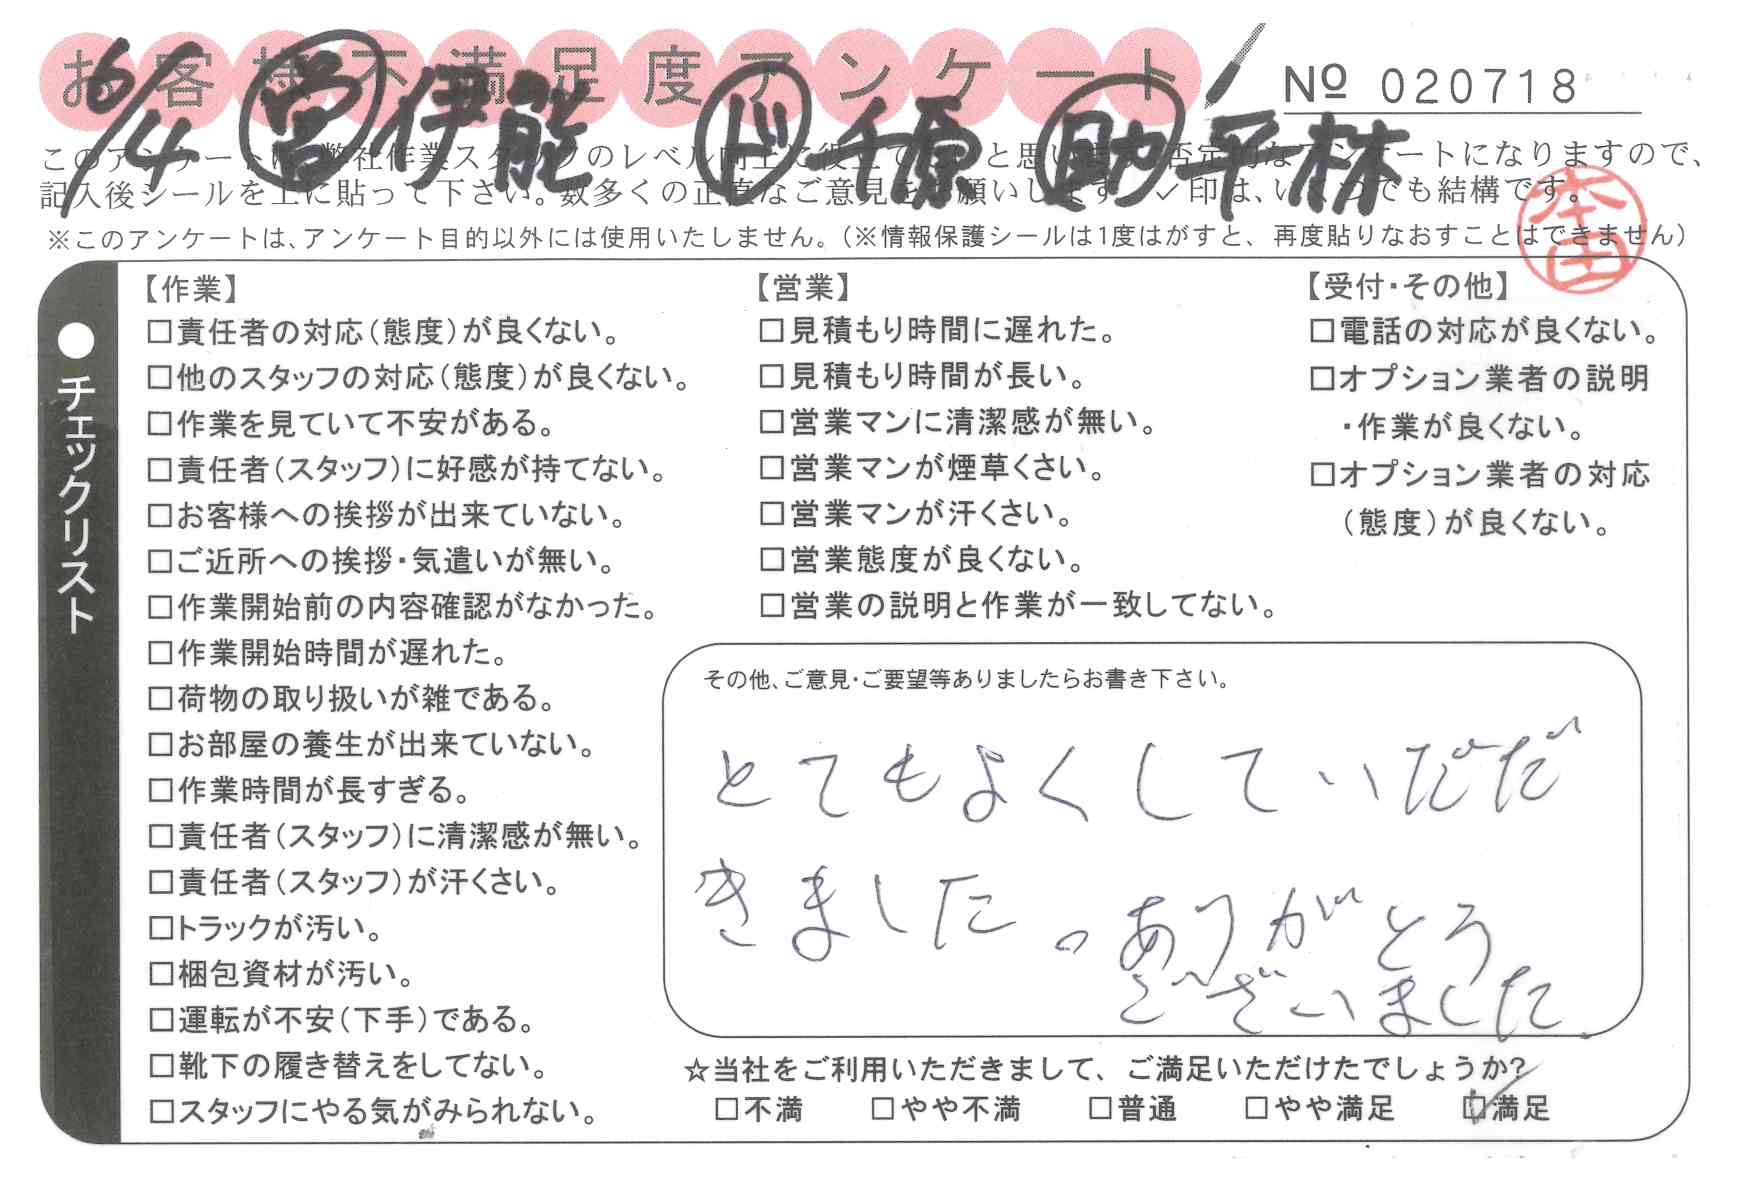 お客様不満足度アンケート
№ 020718
6/4 営 伊能 ド 千原 助 平林
このアンケートは、弊社作業スタッフのレベル向上に役立てたいと思います。否定的なアンケートになりますので、
記入後シールを上に貼って下さい。数多くの正直なご意見をお願いします。✓印は、いくつでも結構です。
本田
※このアンケートは、アンケート目的以外には使用いたしません。(※情報保護シールは1度はがすと、再度貼りなおすことはできません)
●チェックリスト
【作業】
□責任者の対応(態度)が良くない。
□他のスタッフの対応(態度)が良くない。
□作業を見ていて不安がある。
□責任者(スタッフ)に好感が持てない。
□お客様への挨拶が出来ていない。
□ご近所への挨拶・気遣いが無い。
□作業開始前の内容確認がなかった。
□作業開始時間が遅れた。
□荷物の取り扱いが雑である。
□お部屋の養生が出来ていない。
□作業時間が長すぎる。
□責任者(スタッフ)に清潔感が無い。
□責任者(スタッフ)が汗くさい。
□トラックが汚い。
□梱包資材が汚い。
□運転が不安(下手)である。
□靴下の履き替えをしてない。
□スタッフにやる気がみられない。
【営業】
□見積もり時間に遅れた。
□見積もり時間が長い。
□営業マンに清潔感が無い。
□営業マンが煙草くさい。
□営業マンが汗くさい。
□営業態度が良くない。
□営業の説明と作業が一致してない。
【受付・その他】
□電話の対応が良くない。
□オプション業者の説明
・作業が良くない。
□オプション業者の対応
(態度)が良くない。
その他、ご意見・ご要望等ありましたらお書き下さい。
とてもよくしていだだ
きました。ありがとう
ございました
☆当社をご利用いただきまして、ご満足いただけたでしょうか?
□不満 □やや不満 □普通 □やや満足 ☑満足